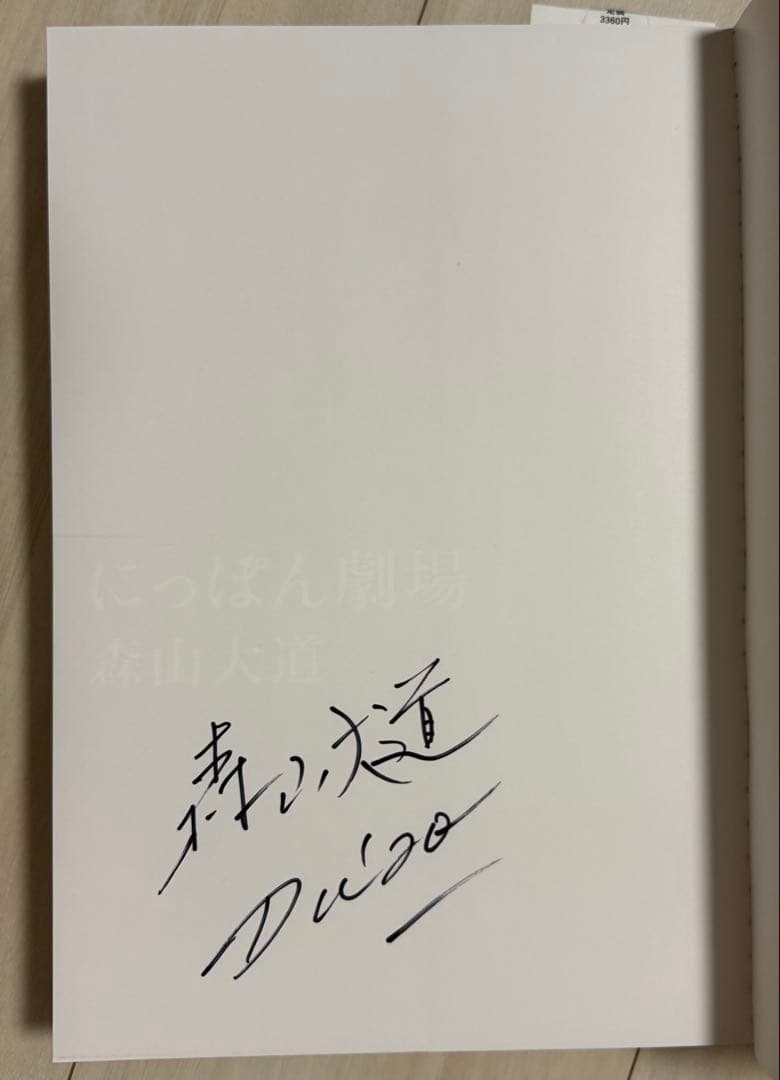 定価
3360円
にっぽん劇場
森山大道
森山大道
Daido